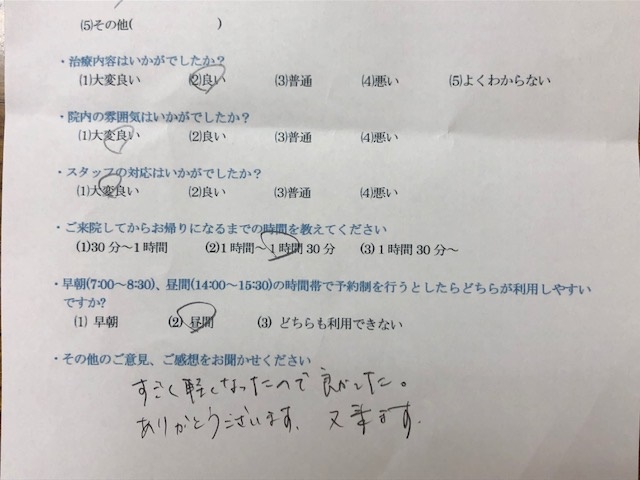 (5)その他(　　　　　)
・治療内容はいかがでしたか?
(1)大変良い　(2)良い　(3)普通　(4)悪い　(5)よくわからない
・院内の雰囲気はいかがでしたか?
(1)大変良い　(2)良い　(3)普通　(4)悪い
・スタッフの対応はいかがでしたか?
(1)大変良い　(2)良い　(3)普通　(4)悪い
・ご来院してからお帰りになるまでの時間を教えてください
(1)30分～1時間　(2)1時間～1時間30分　(3)1時間30分～
・早朝(7:00～8:30)、昼間(14:00～15:30)の時間帯で予約制を行うとしたらどちらが利用しやすい
ですか?
(1) 早朝　(2) 昼間　(3) どちらも利用できない
・その他のご意見、ご感想をお聞かせください
すごく軽くなったので良かした。
ありがとうございます。又来ます。